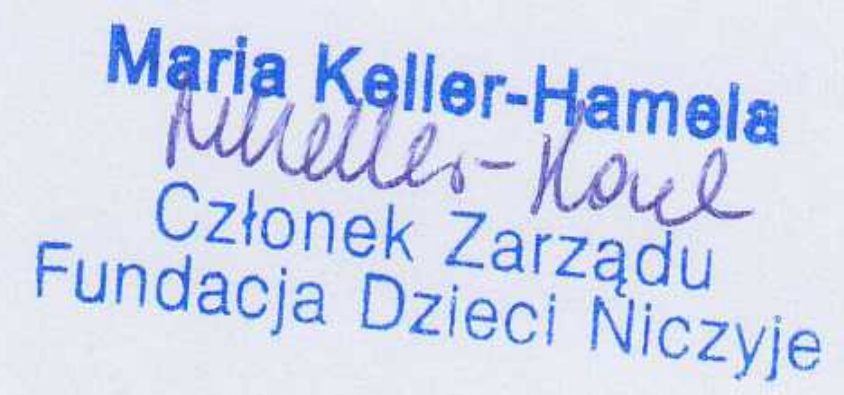 Maria Keller-Hamela
Członek Zarządu
Fundacja Dzieci Niczyje